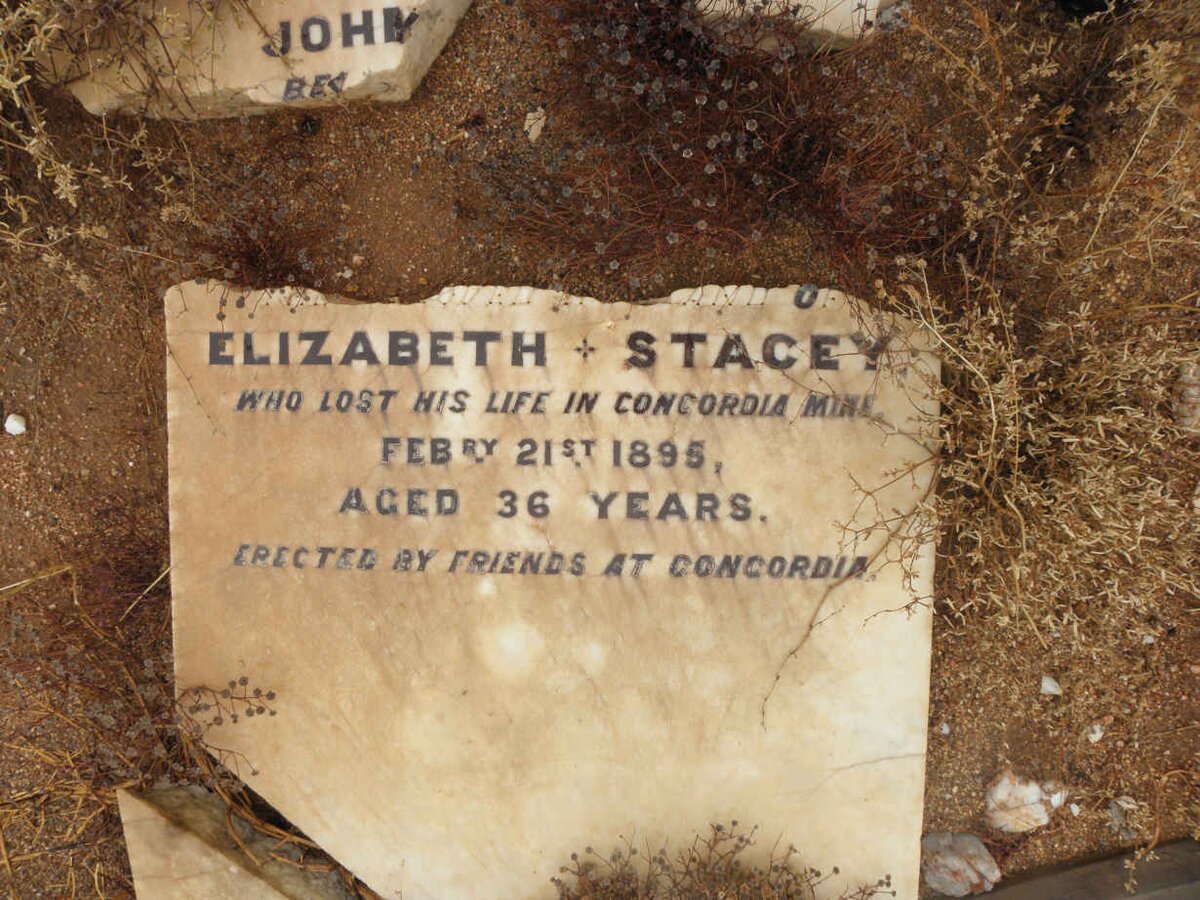 JOHN
BE
O
ELIZABETH + STACEY,
WHO LOST HIS LIFE IN CONCORDIA MINE,
FEBRY 21ST 1895,
AGED 36 YEARS.
ERECTED BY FRIENDS AT CONCORDIA.